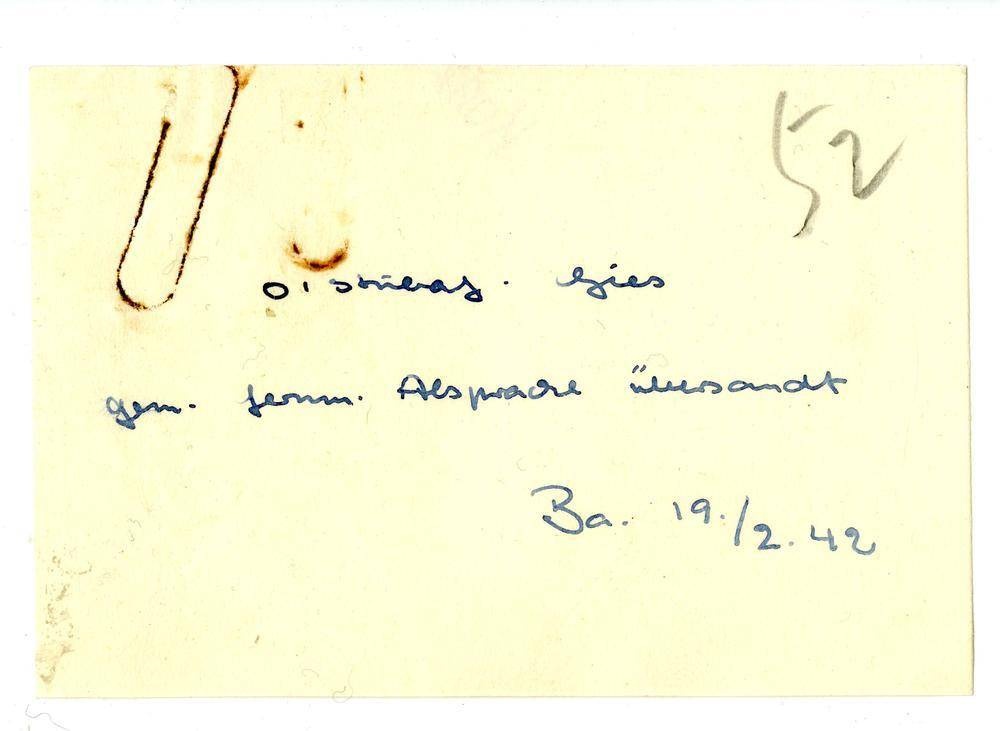 52
O'Stubaf. Gies
gem. fernm. Absprache übersandt
Ba. 19./2. 42